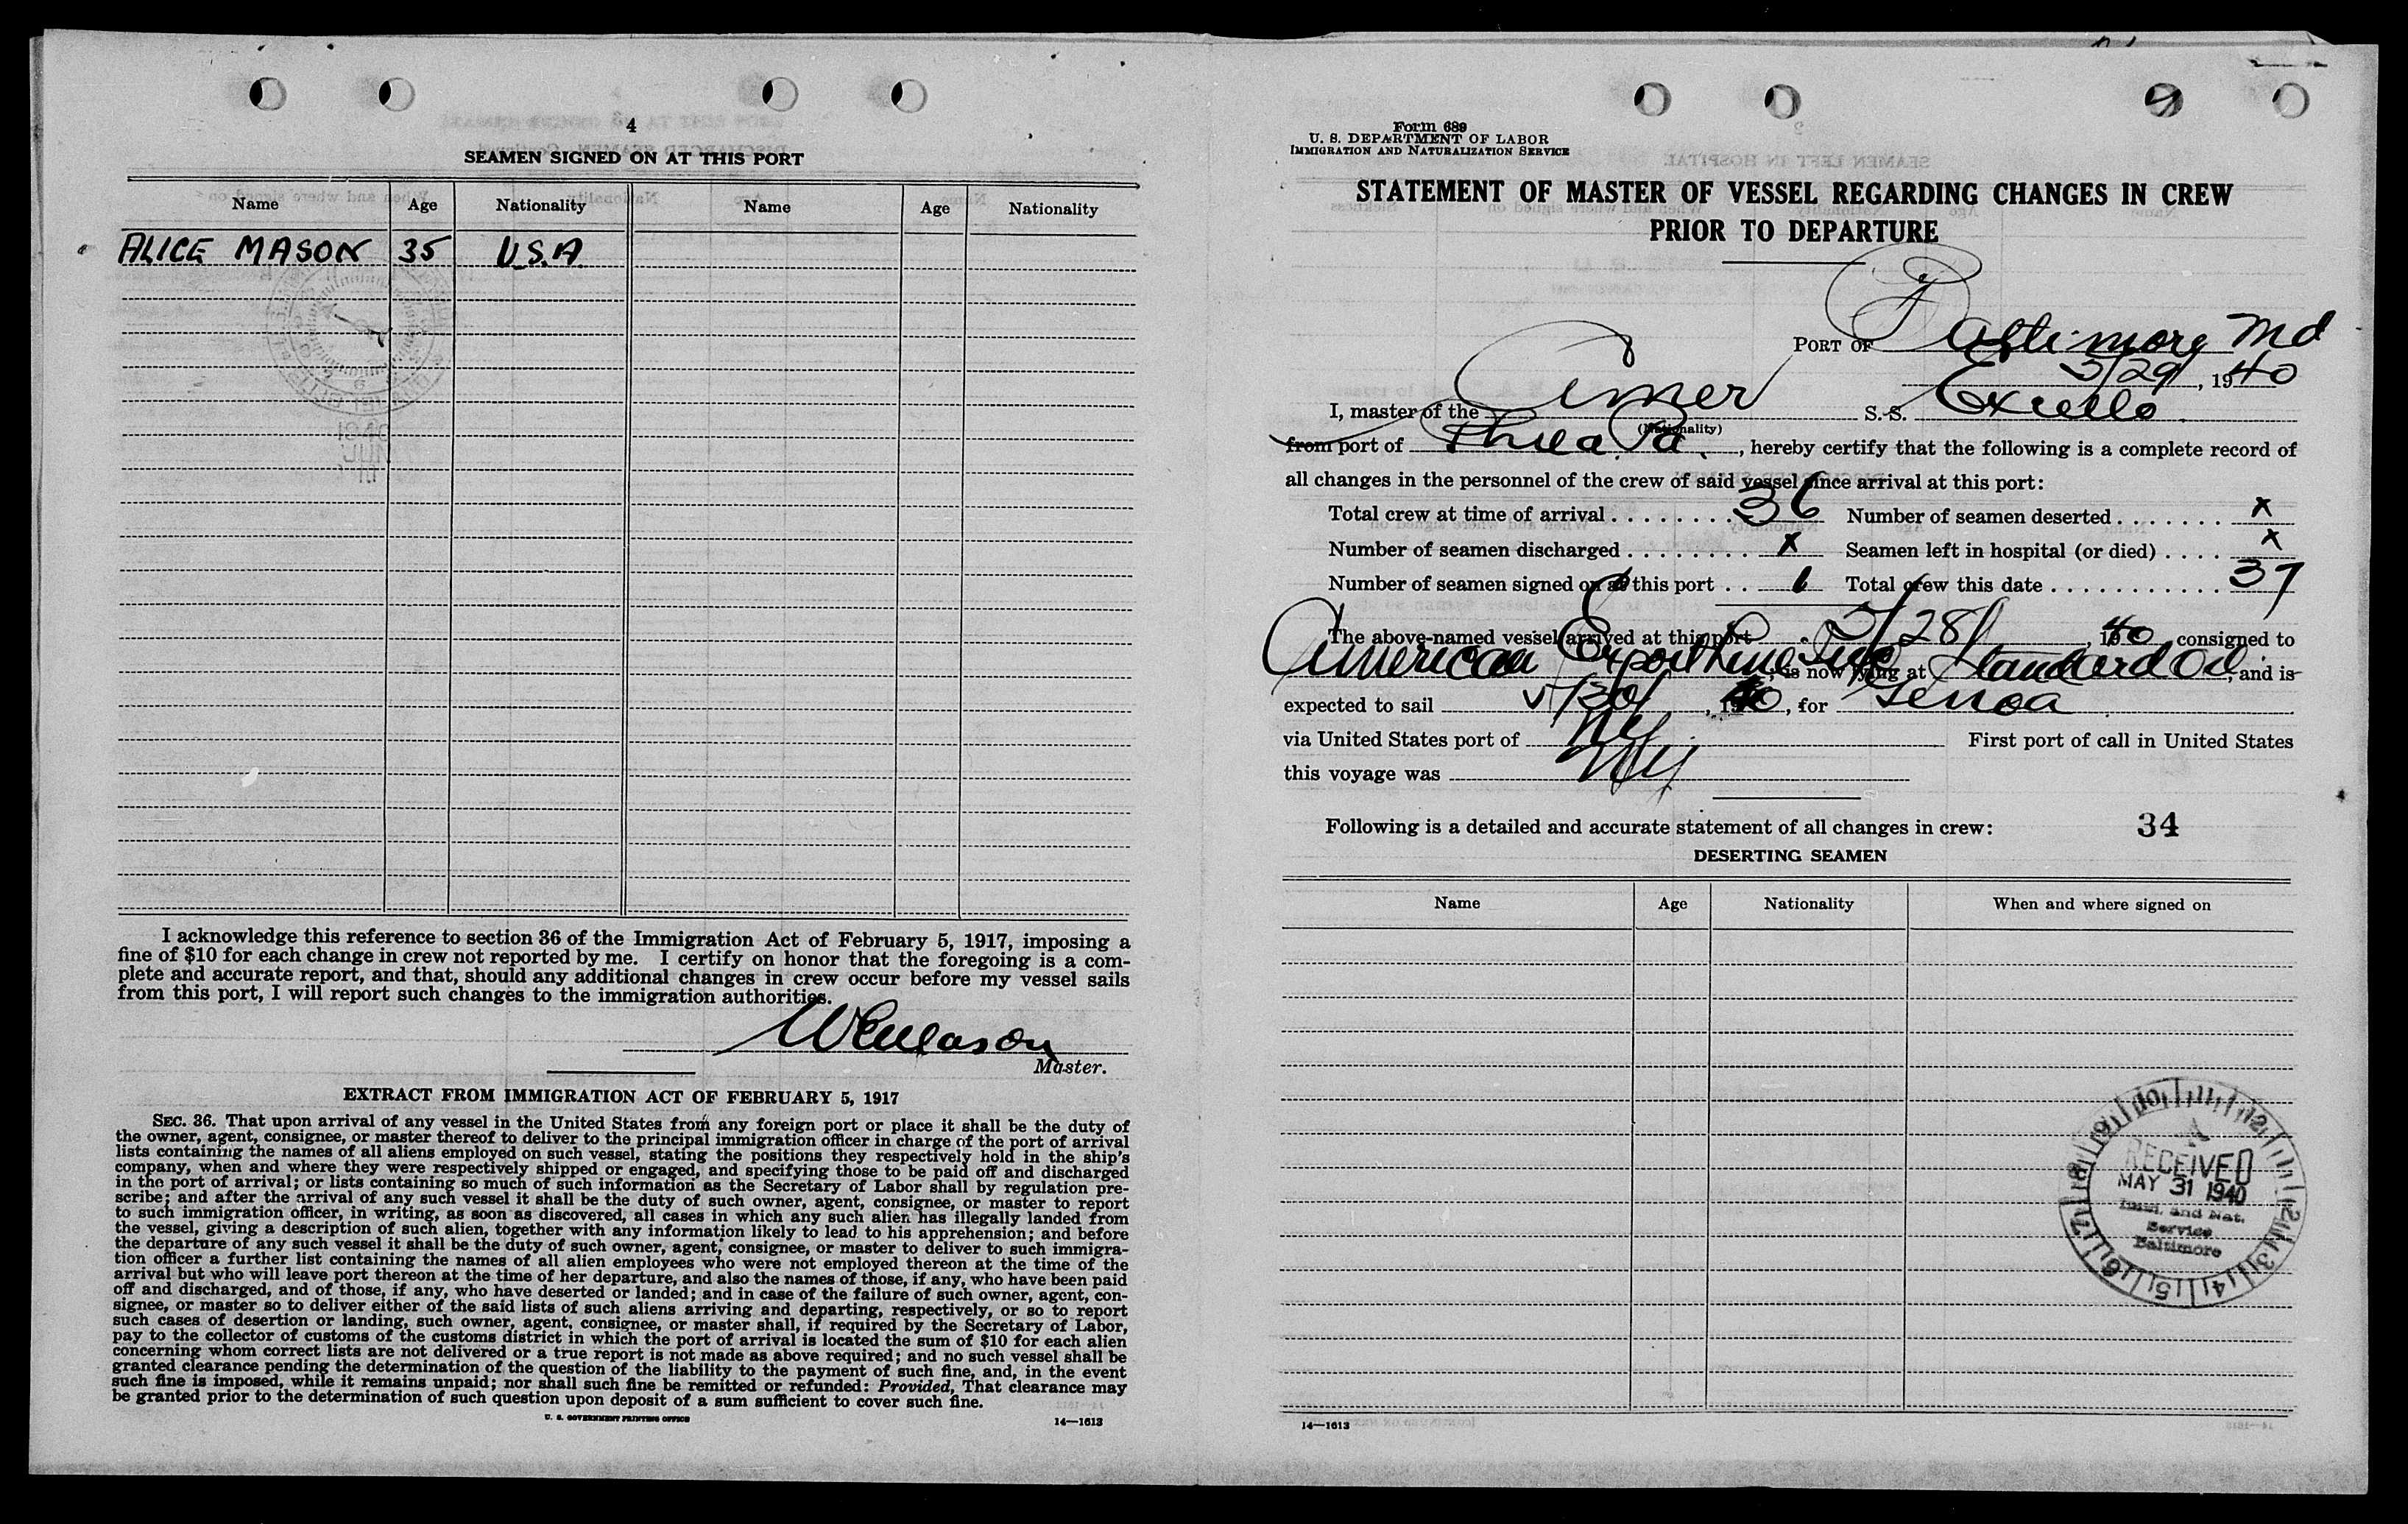 4
SEAMEN SIGNED ON AT THIS PORT
Name Age Nationality Name Age Nationality
ALICE MASON 35 U.S.A.
I acknowledge this reference to section 36 of the Immigration Act of February 5, 1917, imposing a
fine of $10 for each change in crew not reported by me. I certify on honor that the foregoing is a com-
plete and accurate report, and that, should any additional changes in crew occur before my vessel sails
from this port, I will report such changes to the immigration authorities.
Master.
EXTRACT FROM IMMIGRATION ACT OF FEBRUARY 5, 1917
SEC. 36. That upon arrival of any vessel in the United States from any foreign port or place it shall be the duty of
the owner, agent, consignee, or master thereof to deliver to the principal immigration officer in charge of the port of arrival
lists containing the names of all aliens employed on such vessel, stating the positions they respectively hold in the ship's
company, when and where they were respectively shipped or engaged, and specifying those to be paid off and discharged
in the port of arrival; or lists containing so much of such information as the Secretary of Labor shall by regulation pre-
scribe; and after the arrival of any such vessel it shall be the duty of such owner, agent, consignee, or master to report
to such immigration officer, in writing, as soon as discovered, all cases in which any such alien has illegally landed from
the vessel, giving a description of such alien, together with any information likely to lead to his apprehension; and before
the departure of any such vessel it shall be the duty of such owner, agent, consignee, or master to deliver to such immigra-
tion officer a further list containing the names of all alien employees who were not employed thereon at the time of the
arrival but who will leave port thereon at the time of her departure, and also the names of those, if any, who have been paid
off and discharged, and of those, if any, who have deserted or landed; and in case of the failure of such owner, agent, con-
signee, or master so to deliver either of the said lists of such aliens arriving and departing, respectively, or so to report
such cases of desertion or landing, such owner, agent, consignee, or master shall, if required by the Secretary of Labor,
pay to the collector of customs of the customs district in which the port of arrival is located the sum of $10 for each alien
concerning whom correct lists are not delivered or a true report is not made as above required; and no such vessel shall be
granted clearance pending the determination of the question of the liability to the payment of such fine, and, in the event
such fine is imposed, while it remains unpaid; nor shall such fine be remitted or refunded: Provided, That clearance may
be granted prior to the determination of such question upon deposit of a sum sufficient to cover such fine.
U. S. GOVERNMENT PRINTING OFFICE 14—1613
Form 689
U. S. DEPARTMENT OF LABOR
IMMIGRATION AND NATURALIZATION SERVICE
STATEMENT OF MASTER OF VESSEL REGARDING CHANGES IN CREW
PRIOR TO DEPARTURE
PORT OF Baltimore Md
5/29/, 1940
I, master of the Amer S. S. Excello
(Nationality)
from port of Phila Pa., hereby certify that the following is a complete record of
all changes in the personnel of the crew of said vessel since arrival at this port:
Total crew at time of arrival 36 Number of seamen deserted x
Number of seamen discharged x Seamen left in hospital (or died) x
Number of seamen signed on at this port 1 Total crew this date 37
The above-named vessel arrived at this port 5/28/, 1940, consigned to
American Export Line Inc, is now lying at Standard Oil, and is
expected to sail 5/30/, 1940, for Genoa
via United States port of NY First port of call in United States
this voyage was NY
Following is a detailed and accurate statement of all changes in crew: 34
DESERTING SEAMEN
Name Age Nationality When and where signed on
RECEIVED
MAY 31 1940
Immi. and Nat.
Service
Baltimore
14—1613